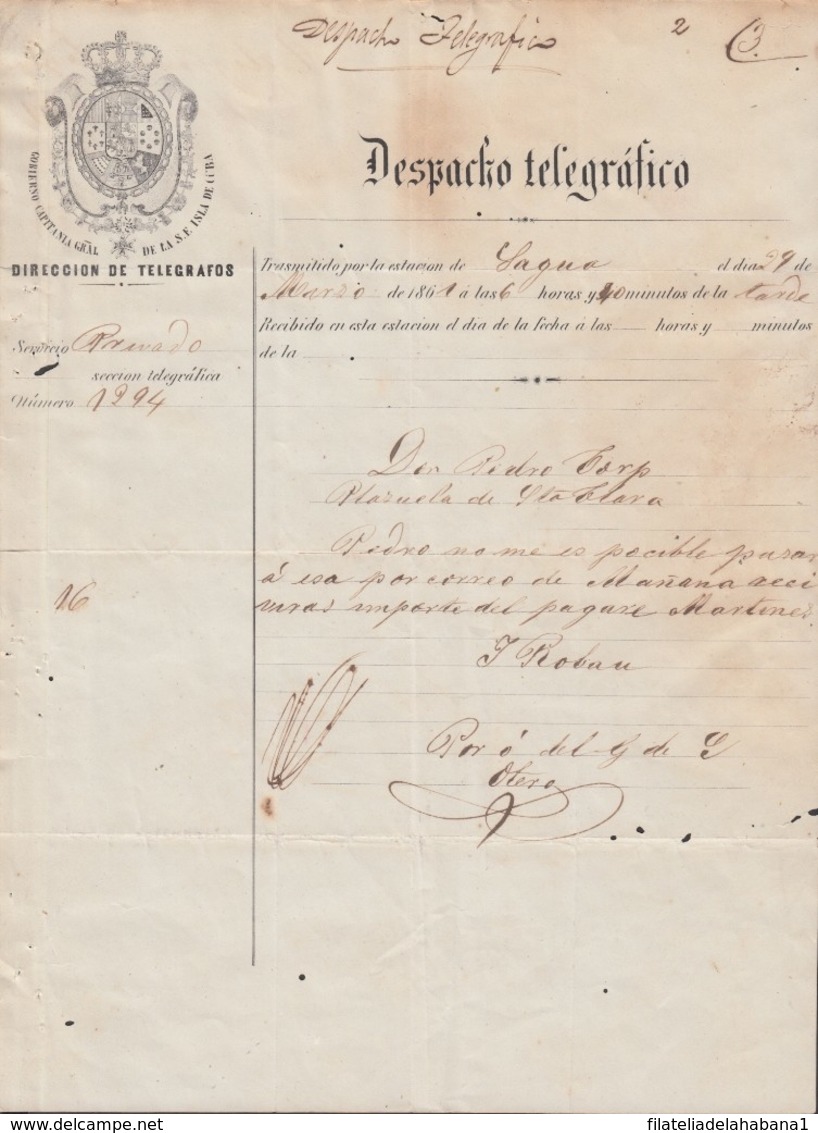 Despacho Telegrafico 2 (3
Despacho telegráfico
GOBIERNO CAPITANIA GRAL DE LA S.F. ISLA DE CUBA
DIRECCION DE TELEGRAFOS
Trasmitido por la estacion de Sagua el dia 29 de
Marzo de 1861 á las 6 horas y 40 minutos de la tarde
Recibido en esta estacion el dia de la fecha á las horas y minutos
de la
Servicio Privado
seccion telegráfica
Número 1294
Don Pedro Torp
Plazuela de Sta Clara
Pedro no me es pocible pasar
á esa por correo de Mañana reci
viras importe del pagare Martines
16
J Robau
Por ó del G de S
Otero
filateliadelahabana1